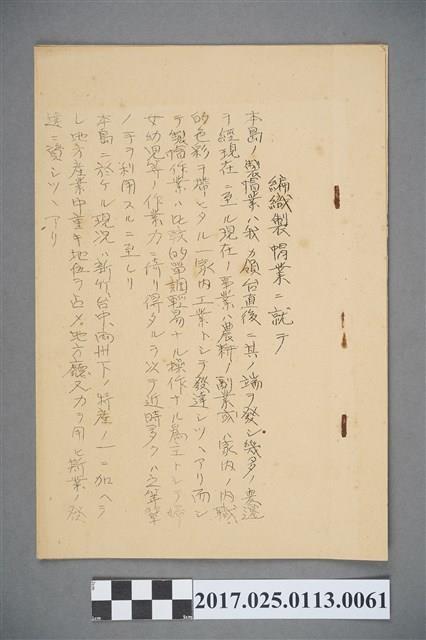 編織製帽業ニ就テ
本島ノ製帽業ハ我カ領台直後ニ其ノ端ヲ発シ幾多ノ変遷
ヲ経現在ニ至ル現在ノ事業ハ農耕ノ副業或ハ家内ノ内職
的色彩ヲ帯ヒタル一家内工業トシテ発達シツヽアリ而シ
テ製帽作業ハ比較的単調軽易ナル操作ナル為主トシテ婦
女幼児等ノ作業力ニ倚リ得タルヲ以テ近時多クハ之年輩
ノ手ヲ利用スルニ至レリ
本島ニ於ケル現況ハ新竹台中両州下ノ特産ノ一ニ加ヘラ
レ地方産業中重キ地位ヲ占メ地方庁又力ヲ用ヒ斯業ノ発
達ニ資シツヽアリ
2017.025.0113.0061